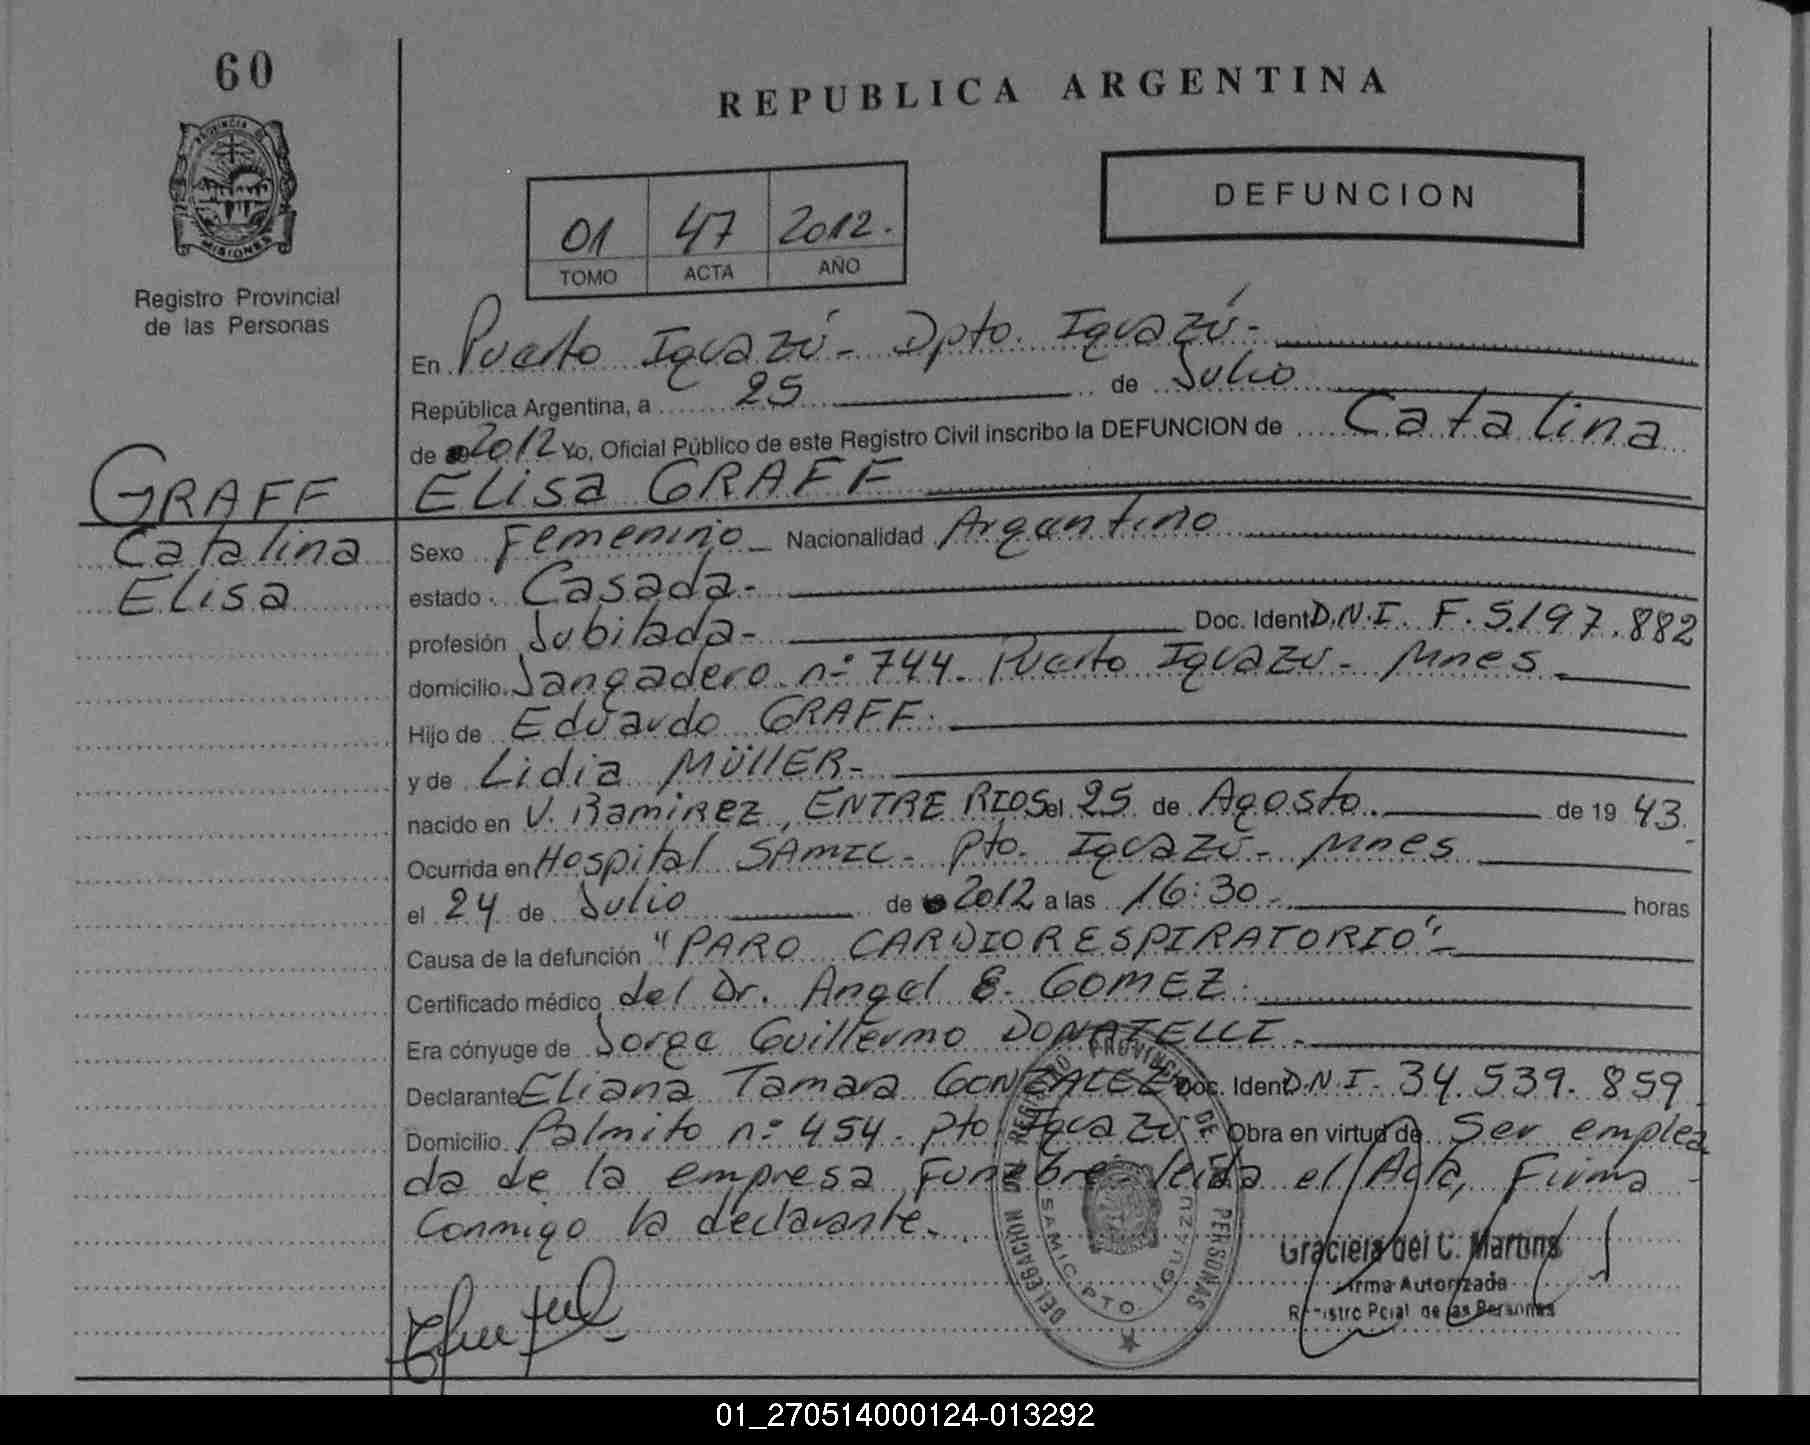 60
REPUBLICA ARGENTINA
PROVINCIA DE
MISIONES
DEFUNCION
01 47 2012.
TOMO ACTA AÑO
Registro Provincial
de las Personas
En Puerto Iguazú - Dpto. Iguazú -
República Argentina, a 25 de Julio
de 2012 Yo, Oficial Público de este Registro Civil inscribo la DEFUNCION de Catalina
GRAFF
Elisa GRAFF
Catalina
Sexo Femenino Nacionalidad Argentino
Elisa
estado Casada -
profesión Jubilada - Doc. Ident D.N.I. F. 5.197.882
domicilio Jangadero nº 744. Puerto Iguazú - Mnes
Hijo de Eduardo GRAFF.
y de Lidia MÜLLER -
nacido en V. Ramirez, ENTRE RIOS el 25 de Agosto. de 19 43.
Ocurrida en Hospital SAMIC - Pto. Iguazú - Mnes
el 24 de Julio de 2012 a las 16:30 - horas
Causa de la defunción "PARO CARDIORESPIRATORIO" -
Certificado médico del Dr. Angel E. GOMEZ.
Era cónyuge de Jorge Guillermo DONATELLI -
Declarante Eliana Tamara GONZALEZ Doc. Ident D.N.I. 34.539.859
Domicilio Palmito nº 454. Pto Iguazú - Obra en virtud de Ser emplea
da de la empresa Funebre - leida el Acta, Firma
Conmigo la declarante.
DELEGACION DEL REGISTRO PROVINCIAL DE LAS PERSONAS
SAMIC. PTO. IGUAZU
Graciela del C. Martins
Firma Autorizada
Registro Pcial de las Personas
01_270514000124-013292